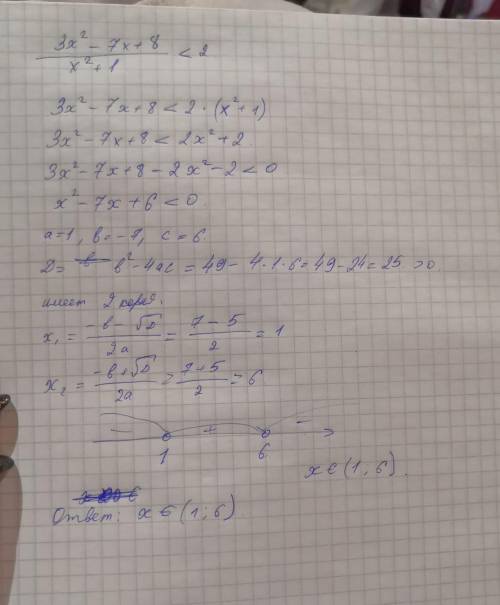 (3x² - 7x + 8)/(x² + 1) < 2
3x² - 7x + 8 < 2 · (x² + 1)
3x² - 7x + 8 < 2x² + 2
3x² - 7x + 8 - 2x² - 2 < 0
x² - 7x + 6 < 0
a = 1, b = -7, c = 6.
D = b² - 4ac = 49 - 4 · 1 · 6 = 49 - 24 = 25 > 0
имеет 2 корня.
x₁ = (-b - √D)/2a = (7 - 5)/2 = 1
x₂ = (-b + √D)/2a = (7 + 5)/2 = 6
- + -
1 6
x ∈ (1; 6).
Ответ: x ∈ (1; 6)